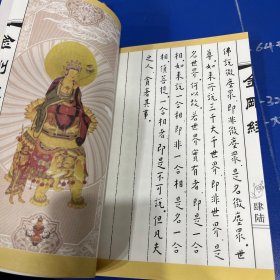 金剛經
肆陆
佛說微塵眾。即非微塵眾。是名微塵眾。世
尊。如來所說三千大千世界。即非世界。是
名世界。何以故。若世界實有者。即是一合
相。如來說一合相。即非一合相。是名一合
相。須菩提。一合相者。即是不可說。但凡夫
之人。貪著其事。